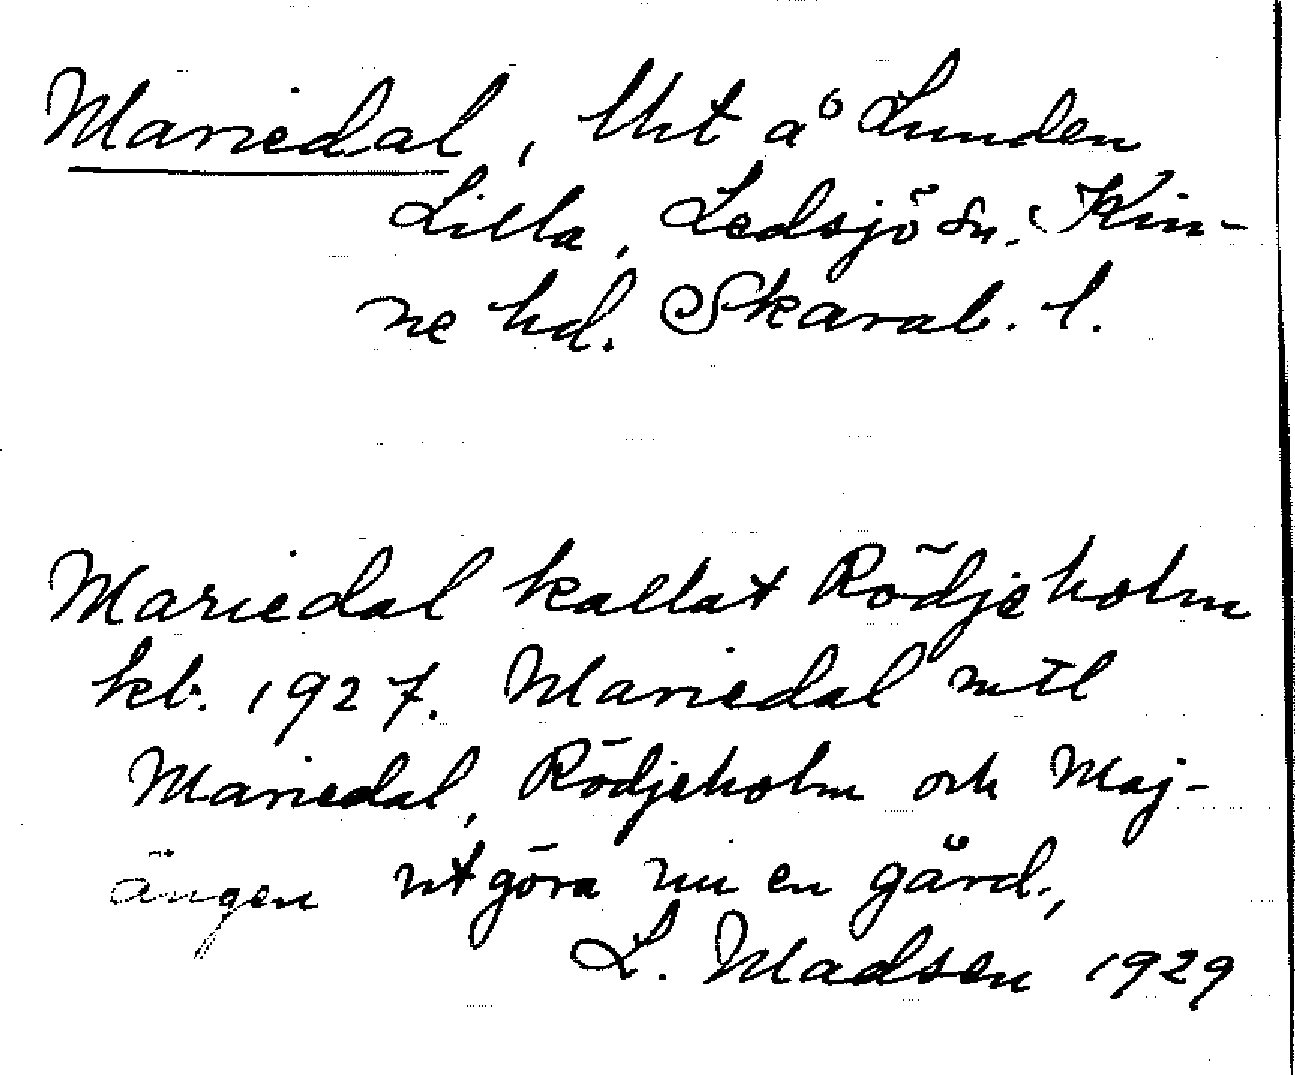 Mariedal, Uht å Lunden
Lilla, Ledsjö sn. Kin-
ne hd. Skarab. l.
Mariedal kallat Rödjeholm
kb. 1927. Mariedal mtl
Mariedal, Rödjeholm och Maj-
ängen utgöra nu en gård.,
L. Madsen 1929